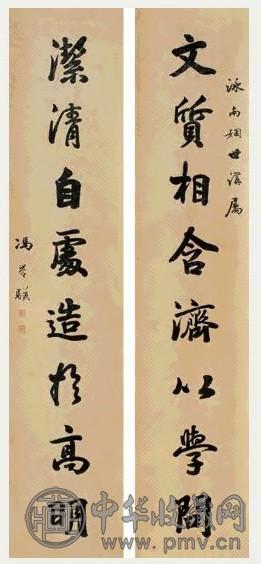 泳南姻世講属
文質相含濟以學問
潔清自處造於高明
馮譽驥
中华收藏网
www.pmv.cn